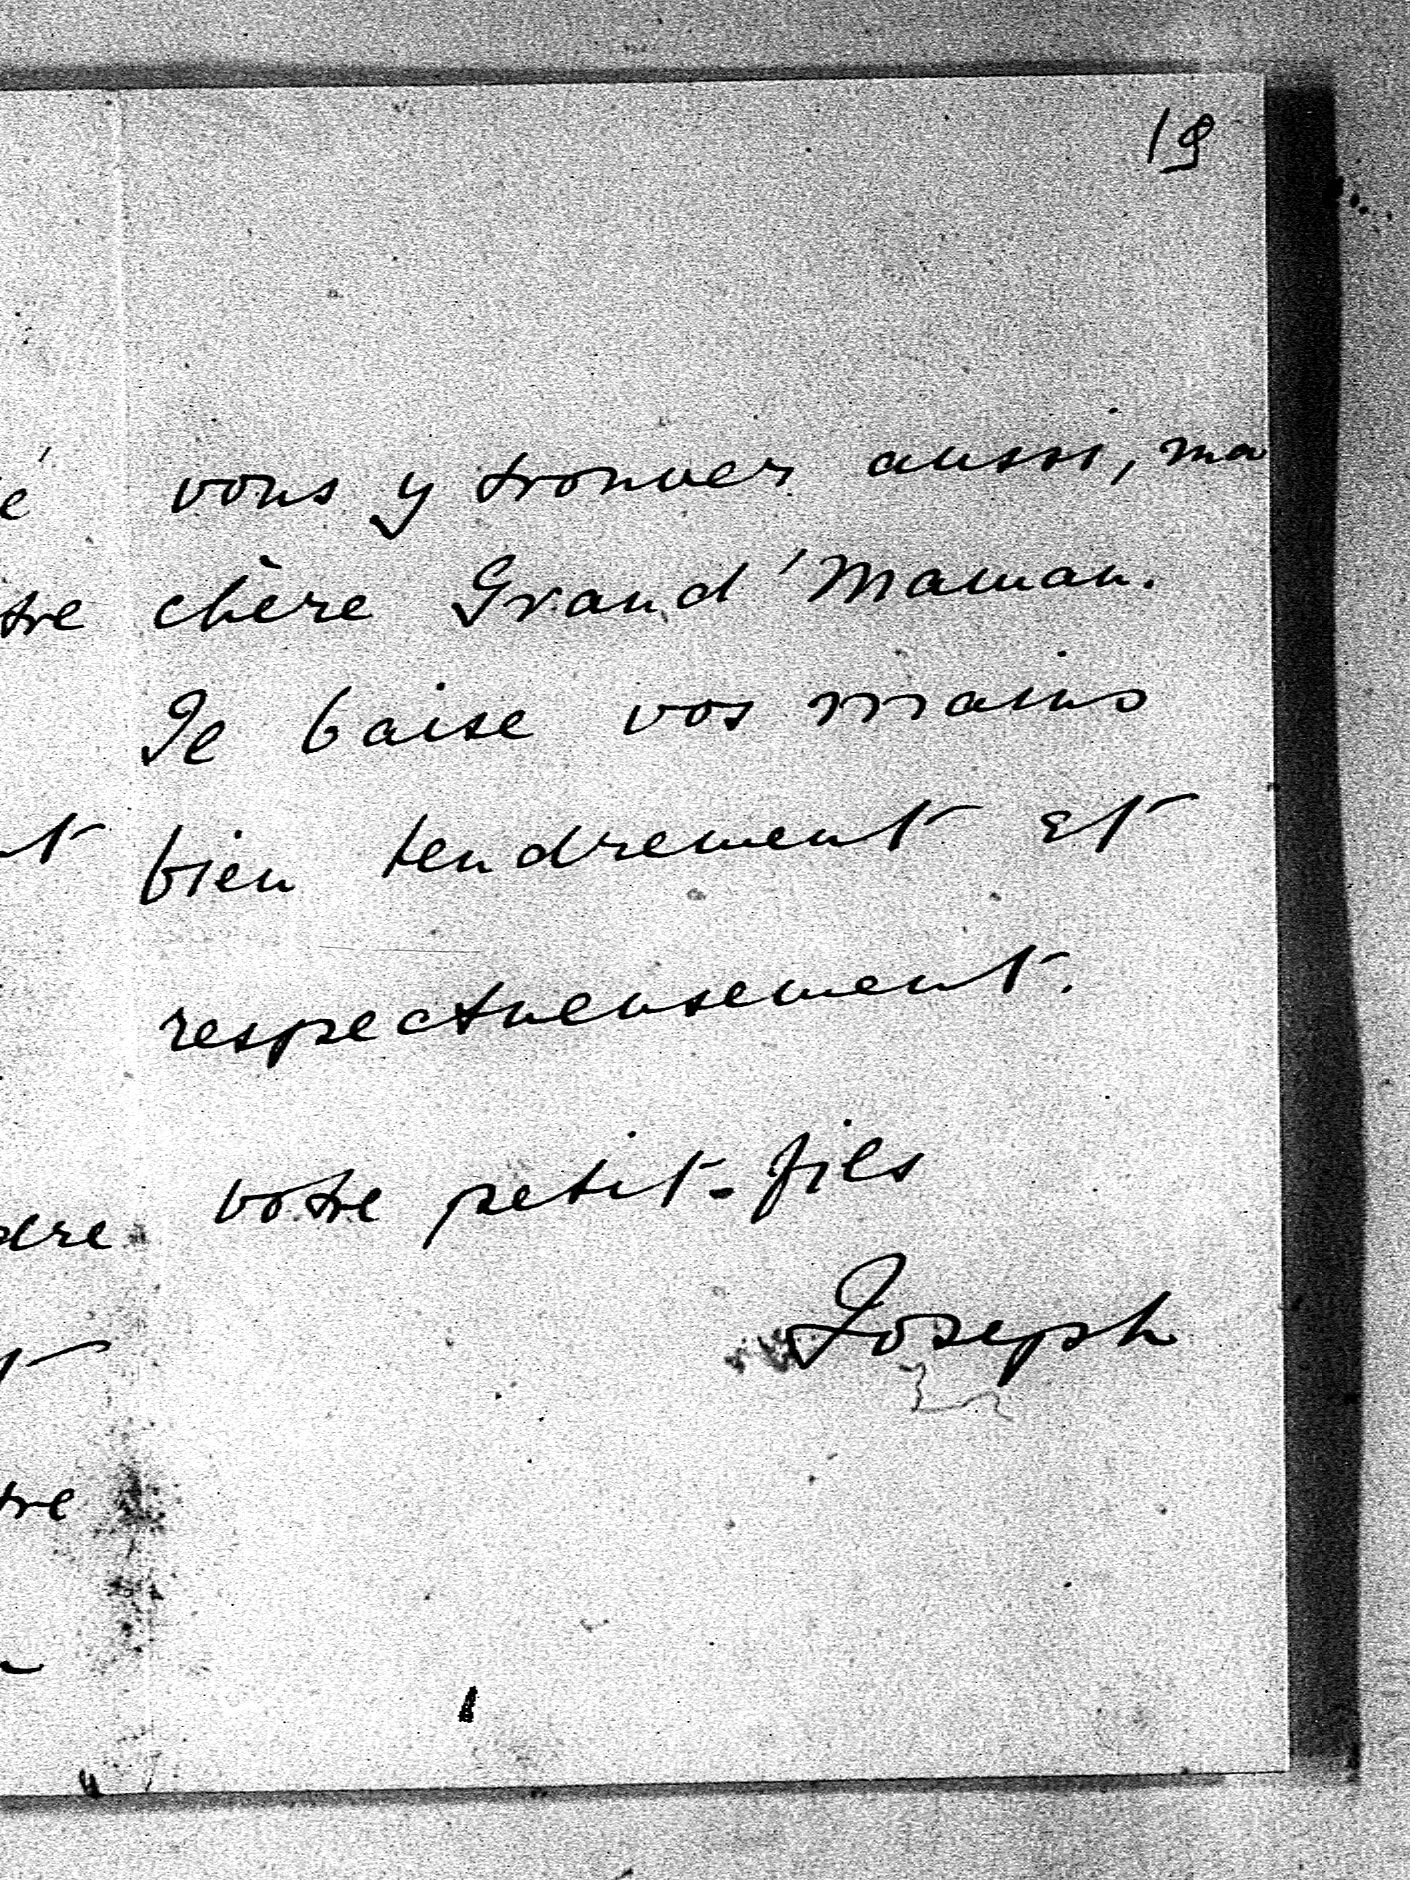 19
vous y trouver aussi, ma
chère Grand'Maman.
Je baise vos mains
bien tendrement et
respectueusement.
votre petit-fils
Joseph